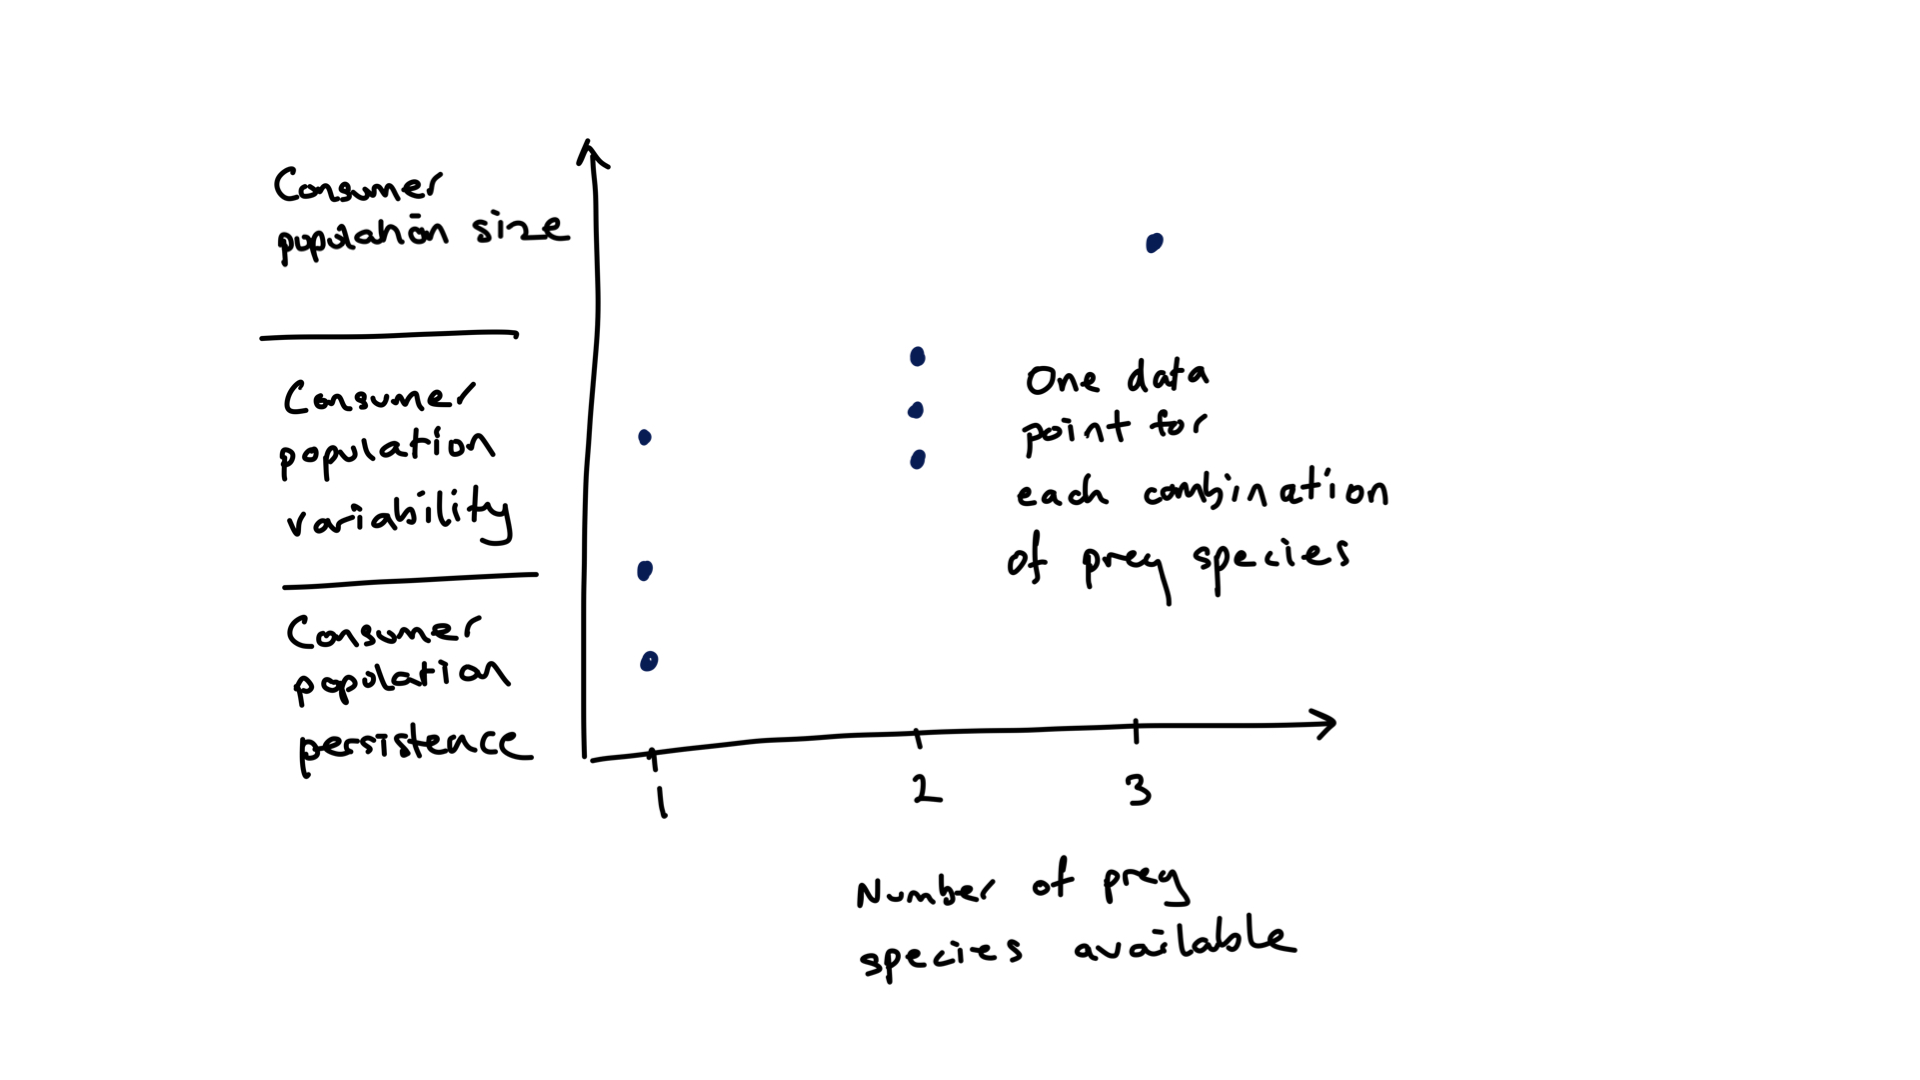 Consumer
population size
Consumer
population
variability
Consumer
population
persistence
One data
point for
each combination
of prey species
1
2
3
Number of prey
species available